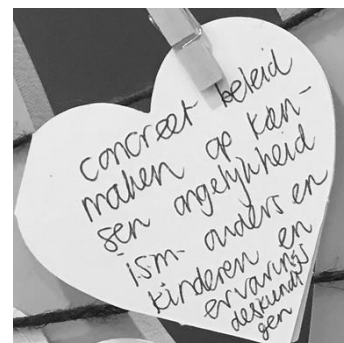 concreet beleid
maken op kan-
sen ongelijkheid
ism. ouders en
kinderen en
ervarings
deskundi
gen